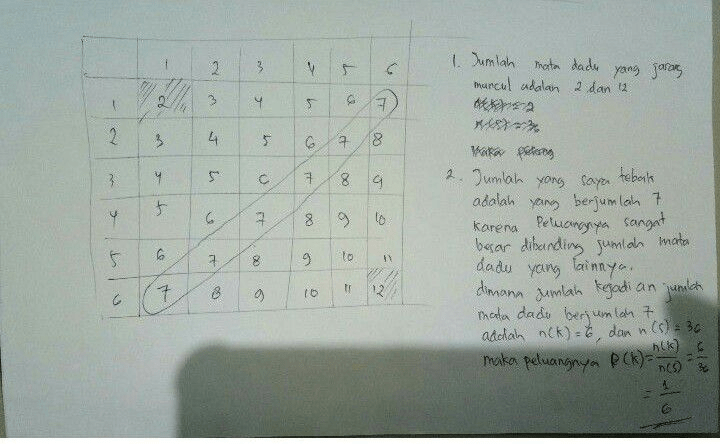 1 2 3 4 5 6
1 2 3 4 5 6 7
2 3 4 5 6 7 8
3 4 5 6 7 8 9
4 5 6 7 8 9 10
5 6 7 8 9 10 11
6 7 8 9 10 11 12
1. Jumlah mata dadu yang jarang
muncul adalah 2 dan 12
n(k) = 2
n(s) = 36
Maka peluang
2. Jumlah yang saya tebak
adalah yang berjumlah 7
karena Peluangnya sangat
besar dibanding jumlah mata
dadu yang lainnya.
dimana jumlah kejadian jumlah
mata dadu berjumlah 7
adalah n(k) = 6, dan n(s) = 36
maka peluangnya P(k) = n(k)/n(s) = 6/36
= 1/6